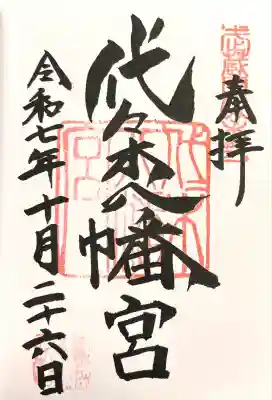 奉拝
代々木八幡宮
令和七年十月二十六日